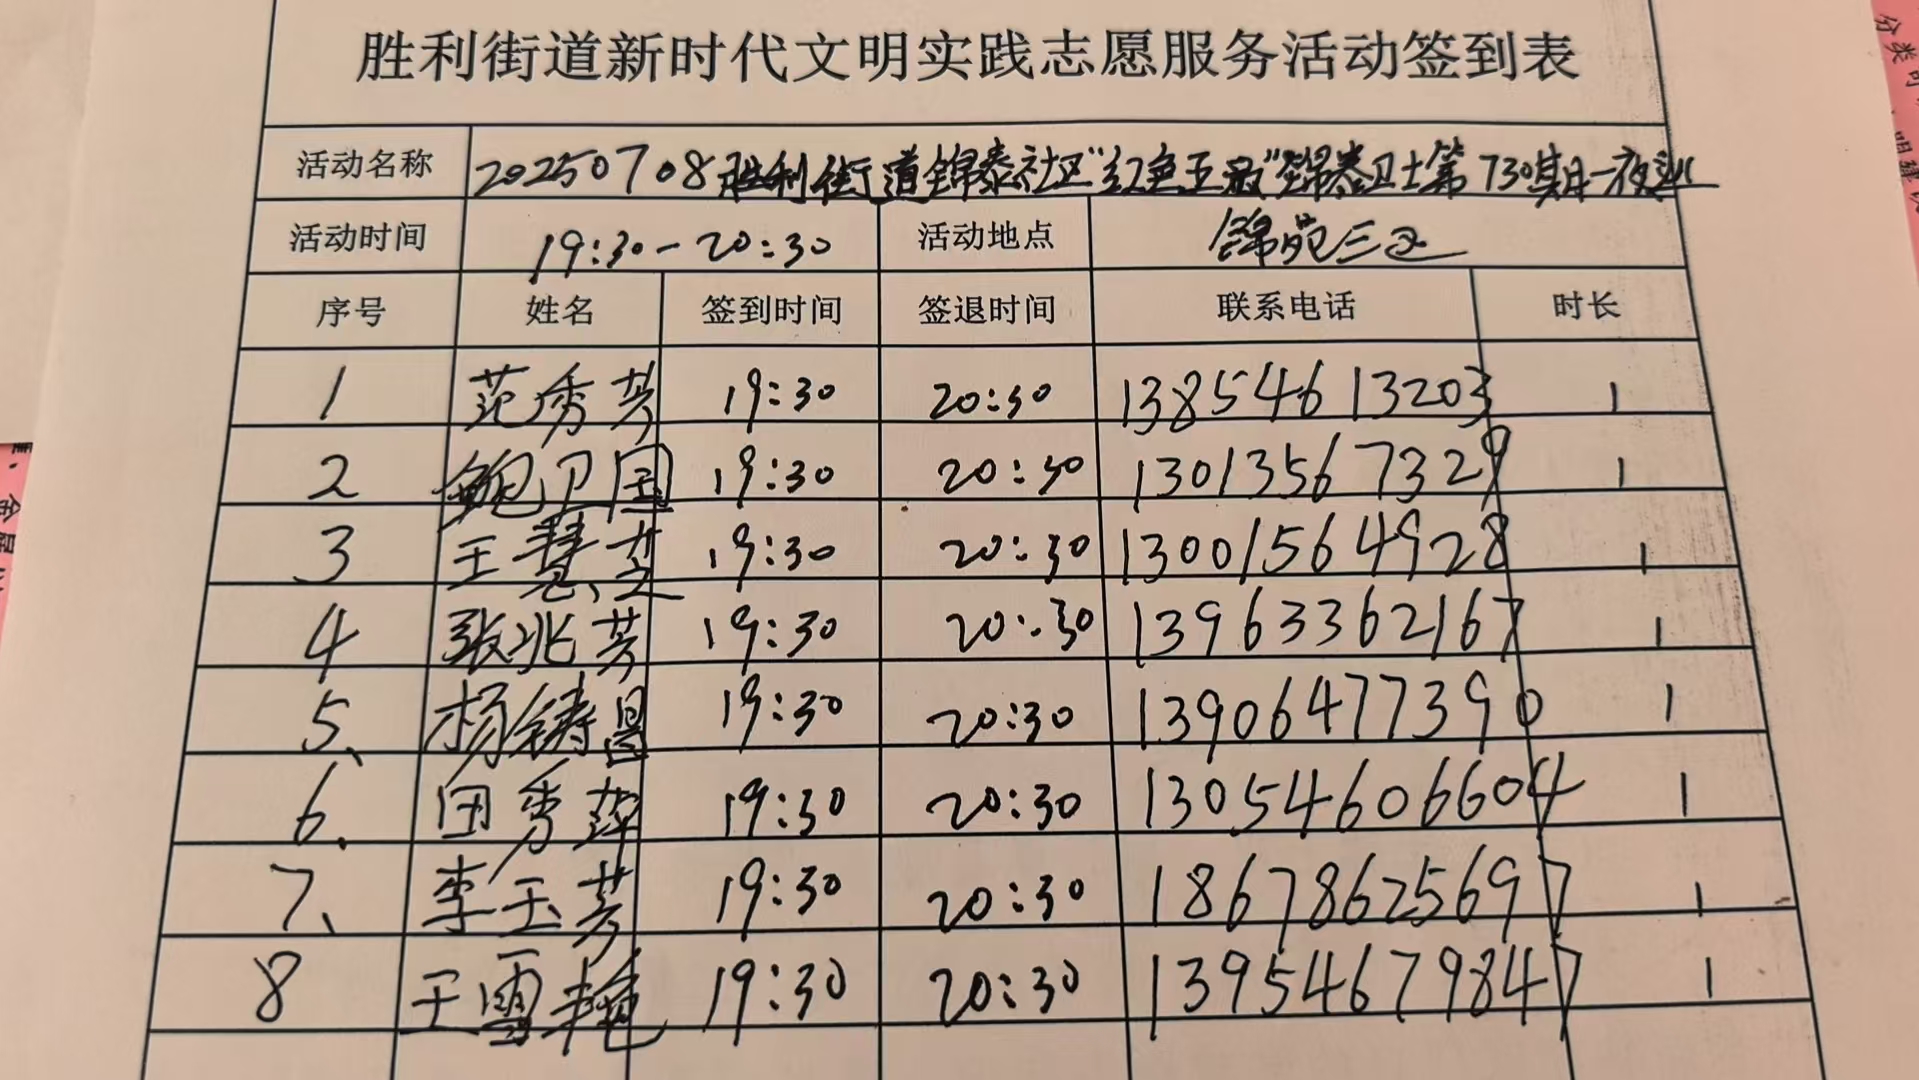 胜利街道新时代文明实践志愿服务活动签到表
活动名称 20250708胜利街道锦泰社区"红色玉最"锦泰卫士第730期一夜巡
活动时间 19:30-20:30 活动地点 锦苑三区
序号 姓名 签到时间 签退时间 联系电话 时长
1 范秀芳 19:30 20:30 13854613203 1
2 鲍卫国 19:30 20:30 13013567329 1
3 王慧芝 19:30 20:30 13001564928 1
4 张兆芳 19:30 20:30 13963362167 1
5、 杨铸昌 19:30 20:30 13906477390 1
6、 田秀萍 19:30 20:30 13054606604 1
7、 李玉芳 19:30 20:30 18678625697 1
8 王雪艳 19:30 20:30 13954679847 1
分类可
明建设
金屋